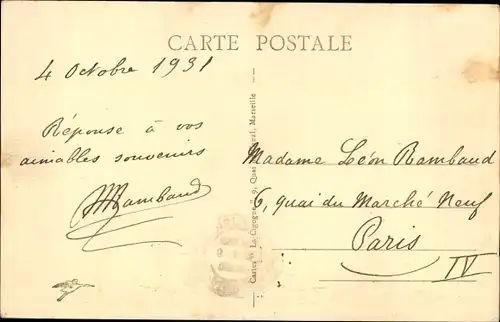 CARTE POSTALE
4 Octobre 1931
Réponse à vos
aimables souvenirs
Rambaud
Madame Léon Rambaud
6, quai du Marché Neuf
Paris
IV
Cartes "La Cigogne", 9, Quai Marseille